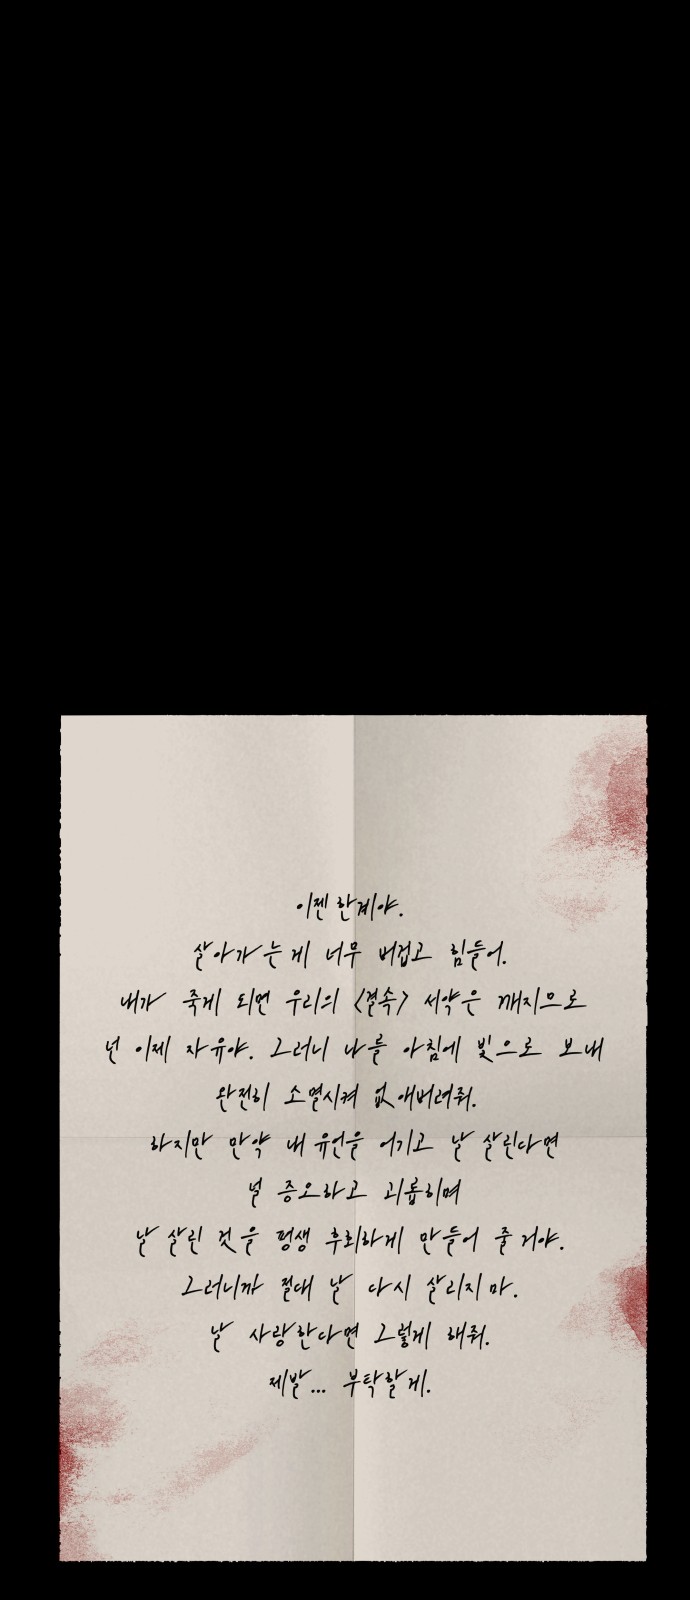 이젠 한계야.
살아가는 게 너무 버겁고 힘들어.
내가 죽게 되면 우리의 <결속> 서약은 깨지므로
넌 이제 자유야. 그러니 나를 아침에 빛으로 보내
완전히 소멸시켜 없애버려줘.
하지만 만약 내 유언을 어기고 날 살린다면
널 증오하고 괴롭히며
날 살린 것을 평생 후회하게 만들어 줄 거야.
그러니까 절대 날 다시 살리지 마.
날 사랑한다면 그렇게 해줘.
제발... 부탁할게.